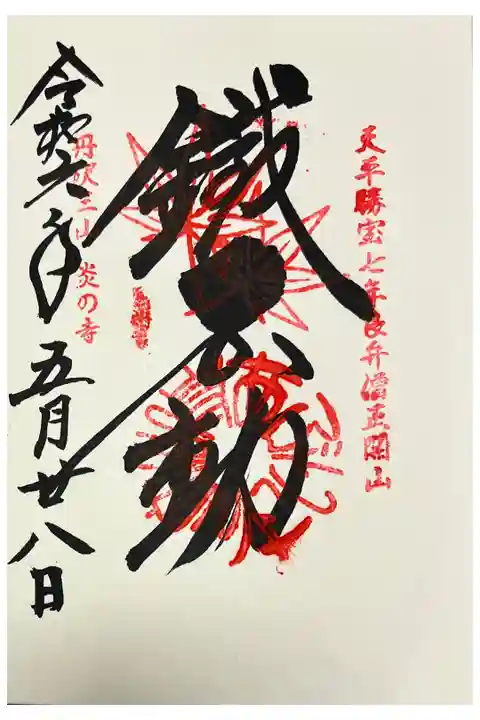 天平勝宝七年良弁僧正開山
鐵不動
丹沢三山 炎の寺
令和六年五月廿八日